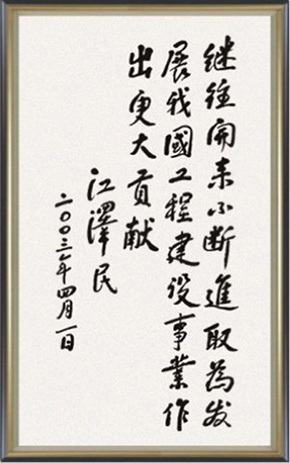 继往开来不断進取為发
展我國工程建设事業作
出更大贡献
江澤民
二〇〇三年四月一日